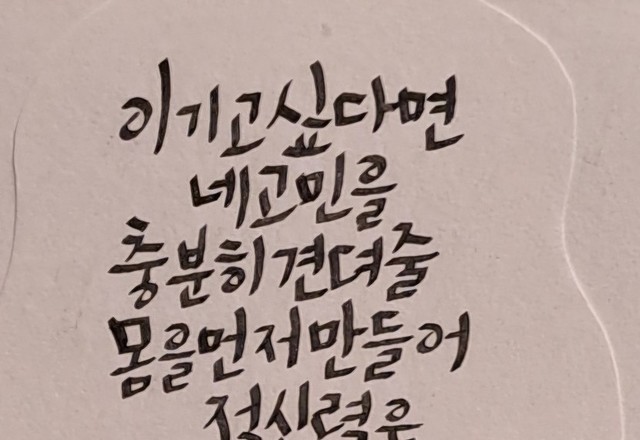 이기고싶다면
네고민을
충분히견뎌줄
몸을먼저만들어
정신력은